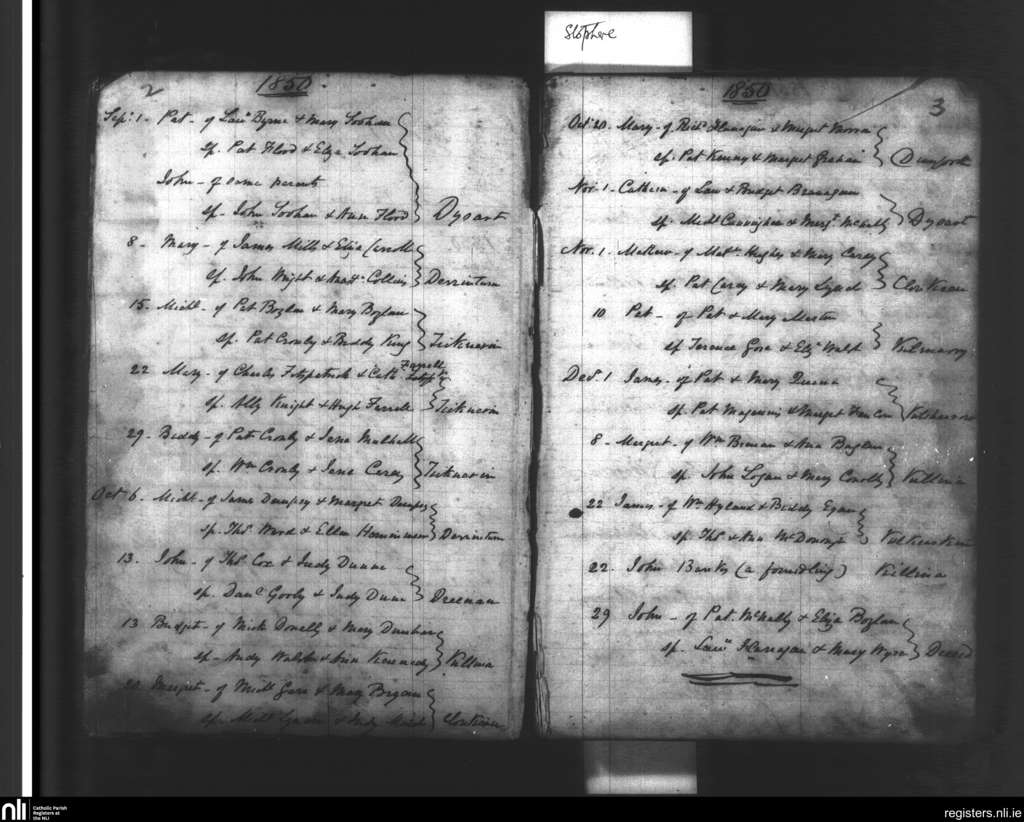 Slotphere
2
1850
Sepr 1 - Pat - of Laure Byrne & Mary Soohan
sp. Pat Flood & Eliza Soohan
John - of same parents
sp. John Soohan & Ann Flood Dysart
8 - Mary - of James Mills & Eliza Carroll
sp. John Wright & Collins Derrinturn
15 - Michl - of Pat Boylan & Mary Boylan
sp. Pat Cronly & Biddy King Ticknevin
22 Mary - of Charles Fitzpatrick & Cath Farrell
sp. Ally Knight & Hugh Farrell Ticknevin
29 - Biddy - of Patt Cronly & Jane Mulhall
sp. Wm Cronly & Jane Carey Ticknevin
Oct 6. Michl - of James Dempsey & Margret Dempsey
sp. Thos Ward & Ellen Derrinturn
13. John - of Thos Cox & Judy Dunne
sp. Danl Gorby & Judy Dunn Dreenan
13 Bridget - of Mick Donelly & Mary Dunbar
sp - Andy Walsh & Ann Kennedy Killina
20. Margret - of Michl & Mary
sp. Michl & Clonkeen
1850
3
Oct 20. Mary - of Richd Flanagan & Margret Moran
sp. Pat Kenny & Margret Graham
Nov. 1 - Cathrin - of Law & Bridget Branagan
sp. Michl Cunningham & Margt McNally Dysart
Nov. 1. Mathew - of Matw Hughes & Mary Carey
sp. Pat Carey & Mary Lynch Clonkeen
10 Pat - of Pat & Mary Martin
sp Terence Gore & Eliz Walsh Kilmurry
Decr 1 James - of Pat & Mary Quinn
sp. Pat & Margret
8 - Margret - of Wm Brennan & Ann Boylan
sp. John Logan & Mary Conolly Killina
22 James - of Wm Hyland & Biddy Egan
sp Thos & Ann McDonough
22. John Banks (a foundling) Killina
29 John - of Pat. McNally & Eliza Boylan
sp. Laure Flanagan & Mary
nli
Catholic Parish
Registers at
the NLI
registers.nli.ie